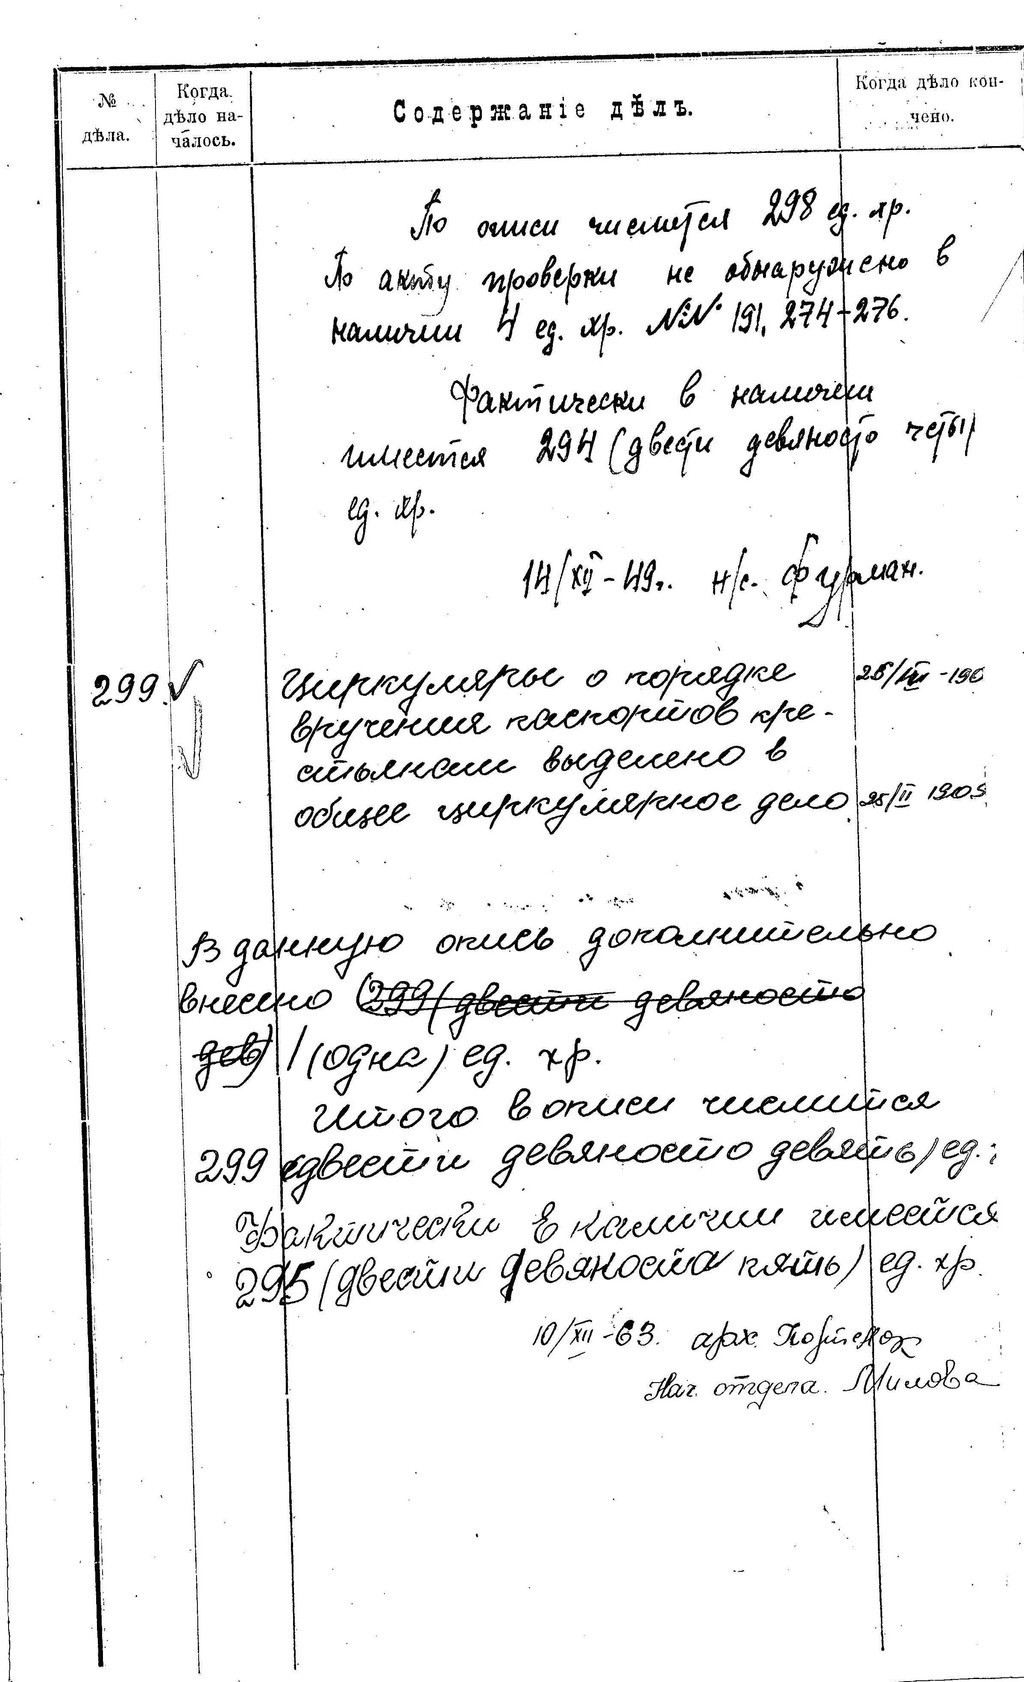 № дѣла.
Когда дѣло на-
чалось.
Содержаніе дѣлъ.
Когда дѣло кон-
чено.
По описи числится 298 ед. хр.
По акту проверки не обнаружено в
наличии 4 ед. хр. №№ 191, 274-276.
Фактически в наличии
имеется 294 (двести девяносто четы
ед. хр.
14/XII-49г. н/с. Фурман.
299. Циркуляры о порядке 26/III-190
вручения паспортов кре-
стьянам выделено в
общее циркулярное дело 25/II 1909
В данную опись дополнительно
внесено (299 (двести девяносто
дев) 1 (одна) ед. хр.
Итого в описи числится
299 (двести девяносто девять) ед.
Фактически в наличии имеется
295 (двести девяносто пять) ед. хр.
10/XII-63. арх.
Нач. отдела. Милова